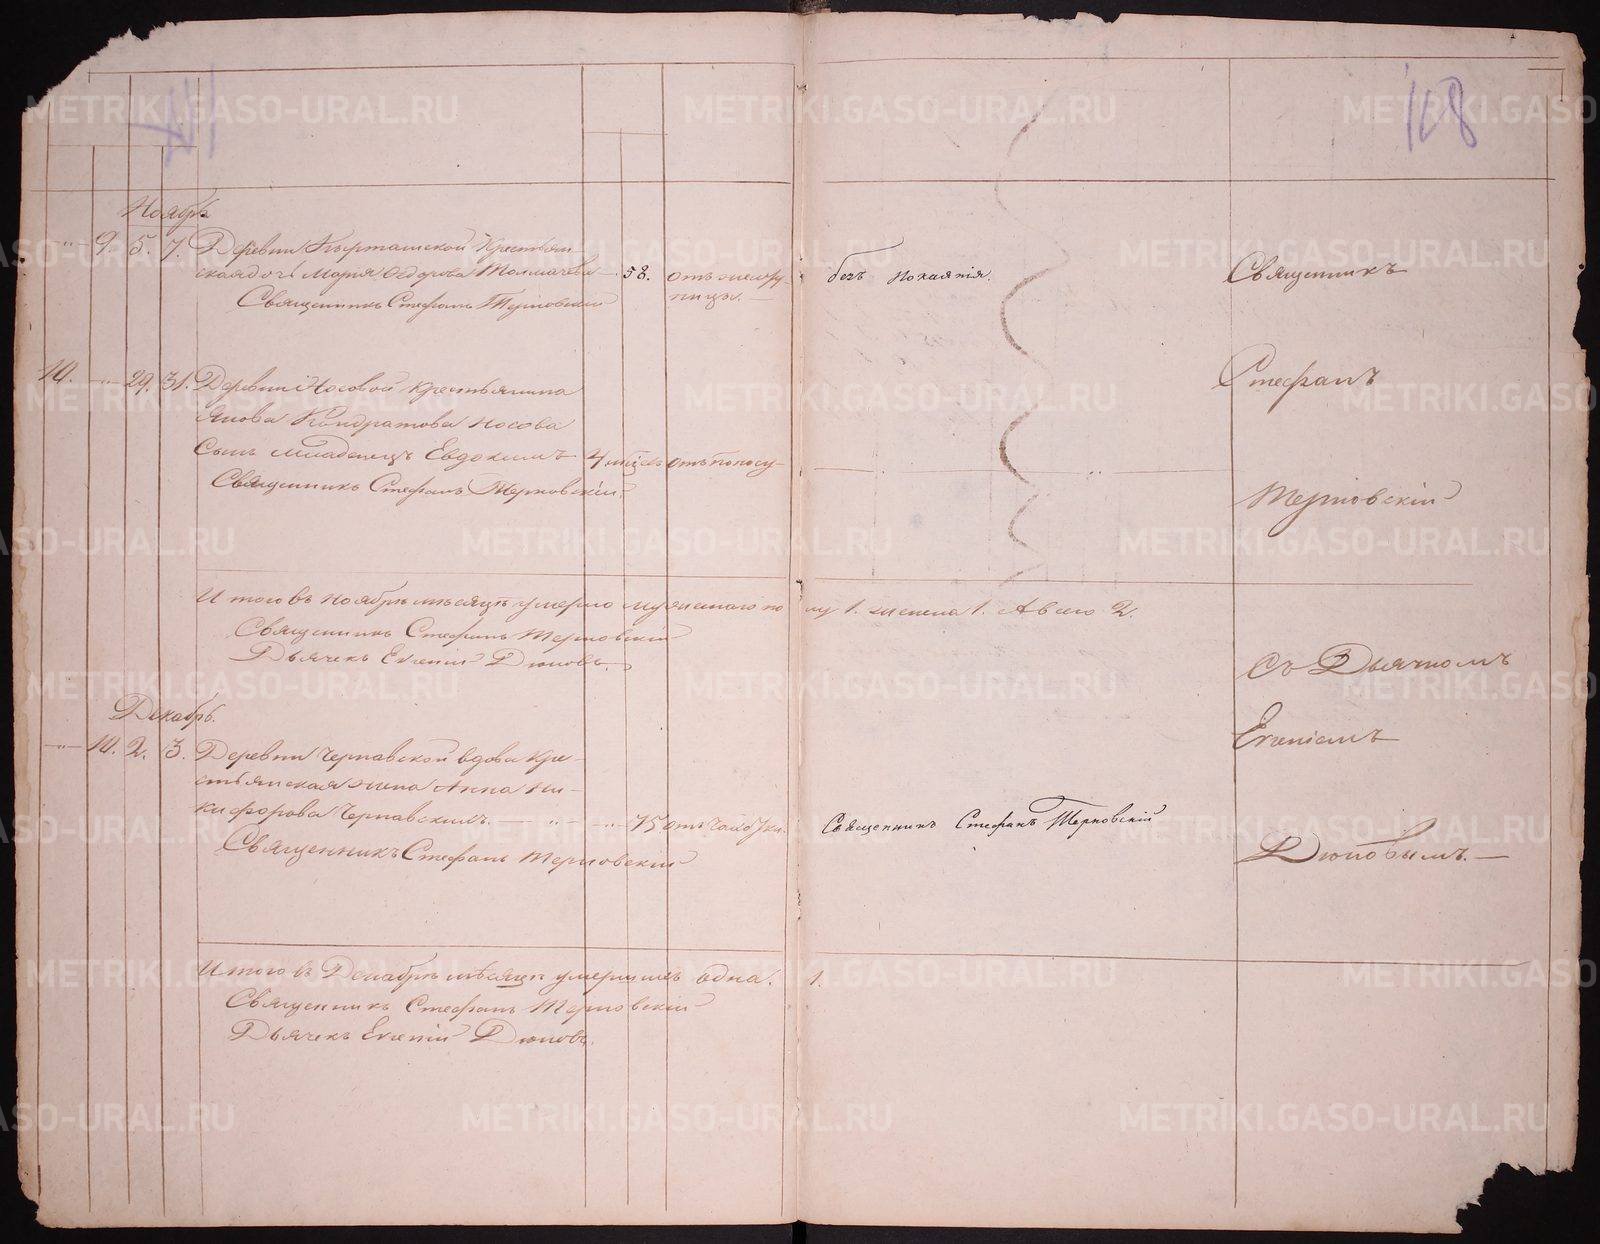 108
Ноябрь
" 9. 5. 7. Деревни Кырташской Крестьян
ская дочь Марія Ѳедорова Толмачева 58. отъ
Священникъ Стефанъ Терновскій
безъ покаянія.
10. " 29. 31. Деревни Носовой Крестьянина
Якова Кондратова Носова
Сынъ младенецъ Евдокимъ 4 мѣс. отъ поносу
Священникъ Стефанъ Терновскій
Итого въ Ноябрѣ мѣсяцѣ умерло мужескаго полу 1. женска 1. А всего 2.
Священникъ Стефанъ Терновскій
Дьячекъ Евгеній Дюковъ.
Декабрь.
" 10. 2. 3. Деревни Чернавской вдова Кре-
стьянская жена Анна Ни-
кифорова Чернавскихъ. " 75 отъ чахотки.
Священникъ Стефанъ Терновскій
Священникъ Стефанъ Терновскій
Итого въ Декабрѣ мѣсяцѣ умершихъ одна. 1.
Священникъ Стефанъ Терновскій
Дьячекъ Евгеній Дюковъ.
Священникъ
Стефанъ
Терновскій
Съ Дьячкомъ
Евгеніемъ
Дюковымъ.
METRIKI.GASO-URAL.RU